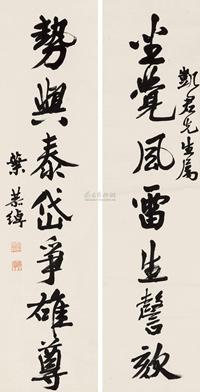 凱君先生属
坐覺風雷生謦欬
勢與泰岱爭雄尊
葉恭綽